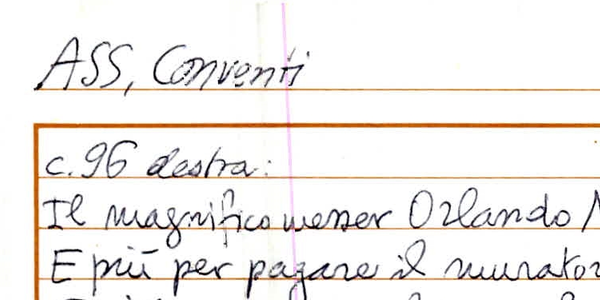 ASS, Conventi
c. 96 destra:
Il magnifico messer Orlando
E più per pagare il murator